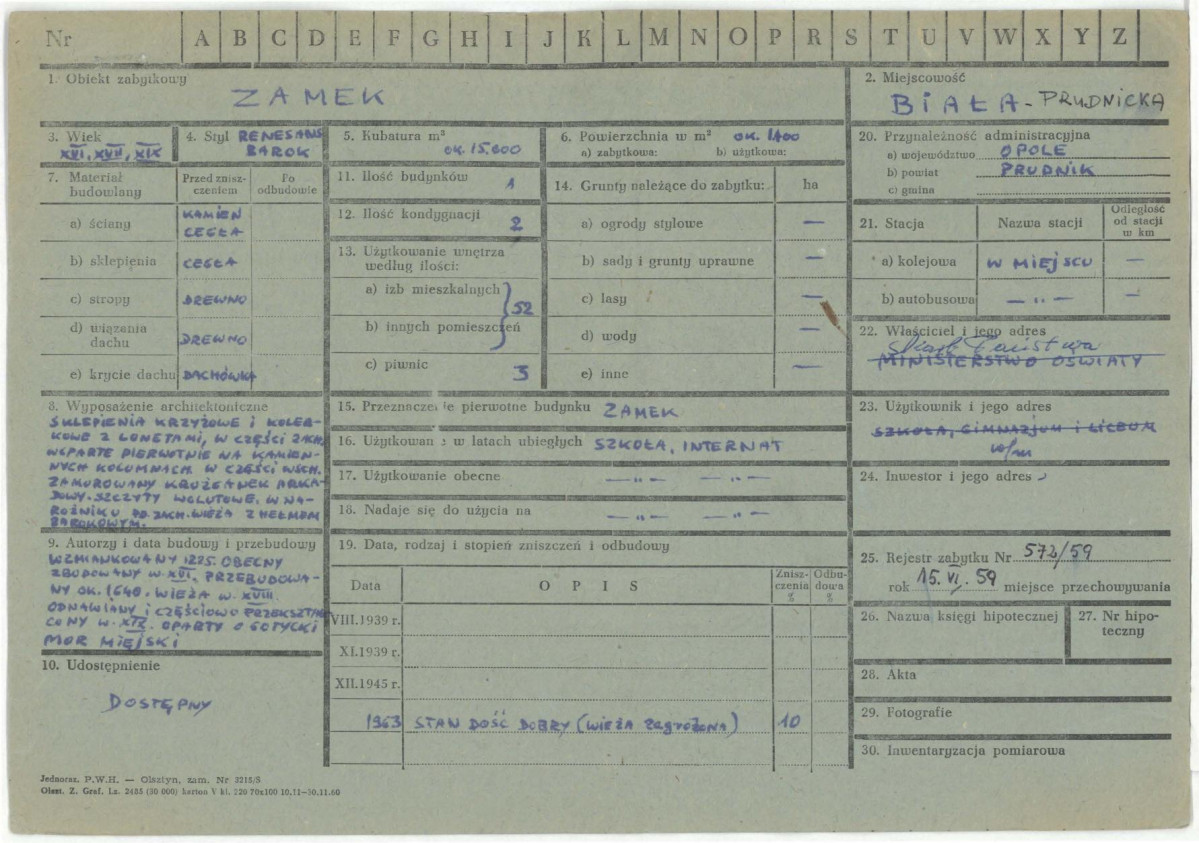 Nr A B C D E F G H I J K L M N O P R S T U V W X Y Z
1. Obiekt zabytkowy
ZAMEK
2. Miejscowość
BIAŁA - PRUDNICKA
3. Wiek
XVI, XVII, XIX
4. Styl RENESANS
BAROK
5. Kubatura m³
OK. 15.000
6. Powierzchnia w m² OK. 1400
a) zabytkowa: b) użytkowa:
7. Materiał budowlany
Przed zniszczeniem
Po odbudowie
a) ściany KAMIEŃ
CEGŁA
b) sklepienia CEGŁA
c) stropy DREWNO
d) wiązania dachu DREWNO
e) krycie dachu DACHÓWKA
8. Wyposażenie architektoniczne
SKLEPIENIA KRZYŻOWE I KOLEB-
KOWE Z LUNETAMI, W CZĘŚCI ZACH.
WSPARTE PIERWOTNIE NA KAMIEN-
NYCH KOLUMNACH. W CZĘŚCI WSCH.
ZAMUROWANY KRUŻGANEK ARKA-
DOWY. SZCZYTY WOLUTOWE. W NA-
ROŻNIKU PD. ZACH. WIEŻA Z HEŁMEM
BAROKOWYM.
9. Autorzy i data budowy i przebudowy
WZMIANKOWANY 1225. OBECNY
ZBUDOWANY W XVI, PRZEBUDOWA-
NY OK. 1640. WIEŻA W XVIII.
ODNAWIANY I CZĘŚCIOWO PRZEKSZTAŁ
CONY W XIX. OPARTY O GOTYCKI
MUR MIEJSKI
10. Udostępnienie
DOSTĘPNY
11. Ilość budynków 1
12. Ilość kondygnacji 2
13. Użytkowanie wnętrza
według ilości:
a) izb mieszkalnych
52
b) innych pomieszczeń
c) piwnic 3
14. Grunty należące do zabytku: ha
a) ogrody stylowe —
b) sady i grunty uprawne —
c) lasy —
d) wody —
e) inne —
15. Przeznaczenie pierwotne budynku ZAMEK
16. Użytkowanie w latach ubiegłych SZKOŁA, INTERNAT
17. Użytkowanie obecne —„— —„—
18. Nadaje się do użycia na —„— —„—
19. Data, rodzaj i stopień zniszczeń i odbudowy
Data OPIS Zniszczenia % Odbudowa %
VIII.1939 r.
XI.1939 r.
XII.1945 r.
1963 STAN DOŚĆ DOBRY (WIEŻA ZAGROŻONA) 10
20. Przynależność administracyjna
a) województwo OPOLE
b) powiat PRUDNIK
c) gmina
21. Stacja Nazwa stacji Odległość od stacji w km
a) kolejowa W MIEJSCU —
b) autobusowa —„— —
22. Właściciel i jego adres
Skarb Państwa
MINISTERSTWO OŚWIATY
23. Użytkownik i jego adres
SZKOŁA, GIMNAZJUM I LICEUM
w/m
24. Inwestor i jego adres
25. Rejestr zabytku Nr 572/59
rok 15.VI.59 miejsce przechowywania
26. Nazwa księgi hipotecznej
27. Nr hipo-
teczny
28. Akta
29. Fotografie
30. Inwentaryzacja pomiarowa
Jednoraz. P.W.H. — Olsztyn, zam. Nr 3215/S
Olszt. Z. Graf. Lz. 2485 (30 000) karton V kl. 220 70x100 10.11—30.11.60